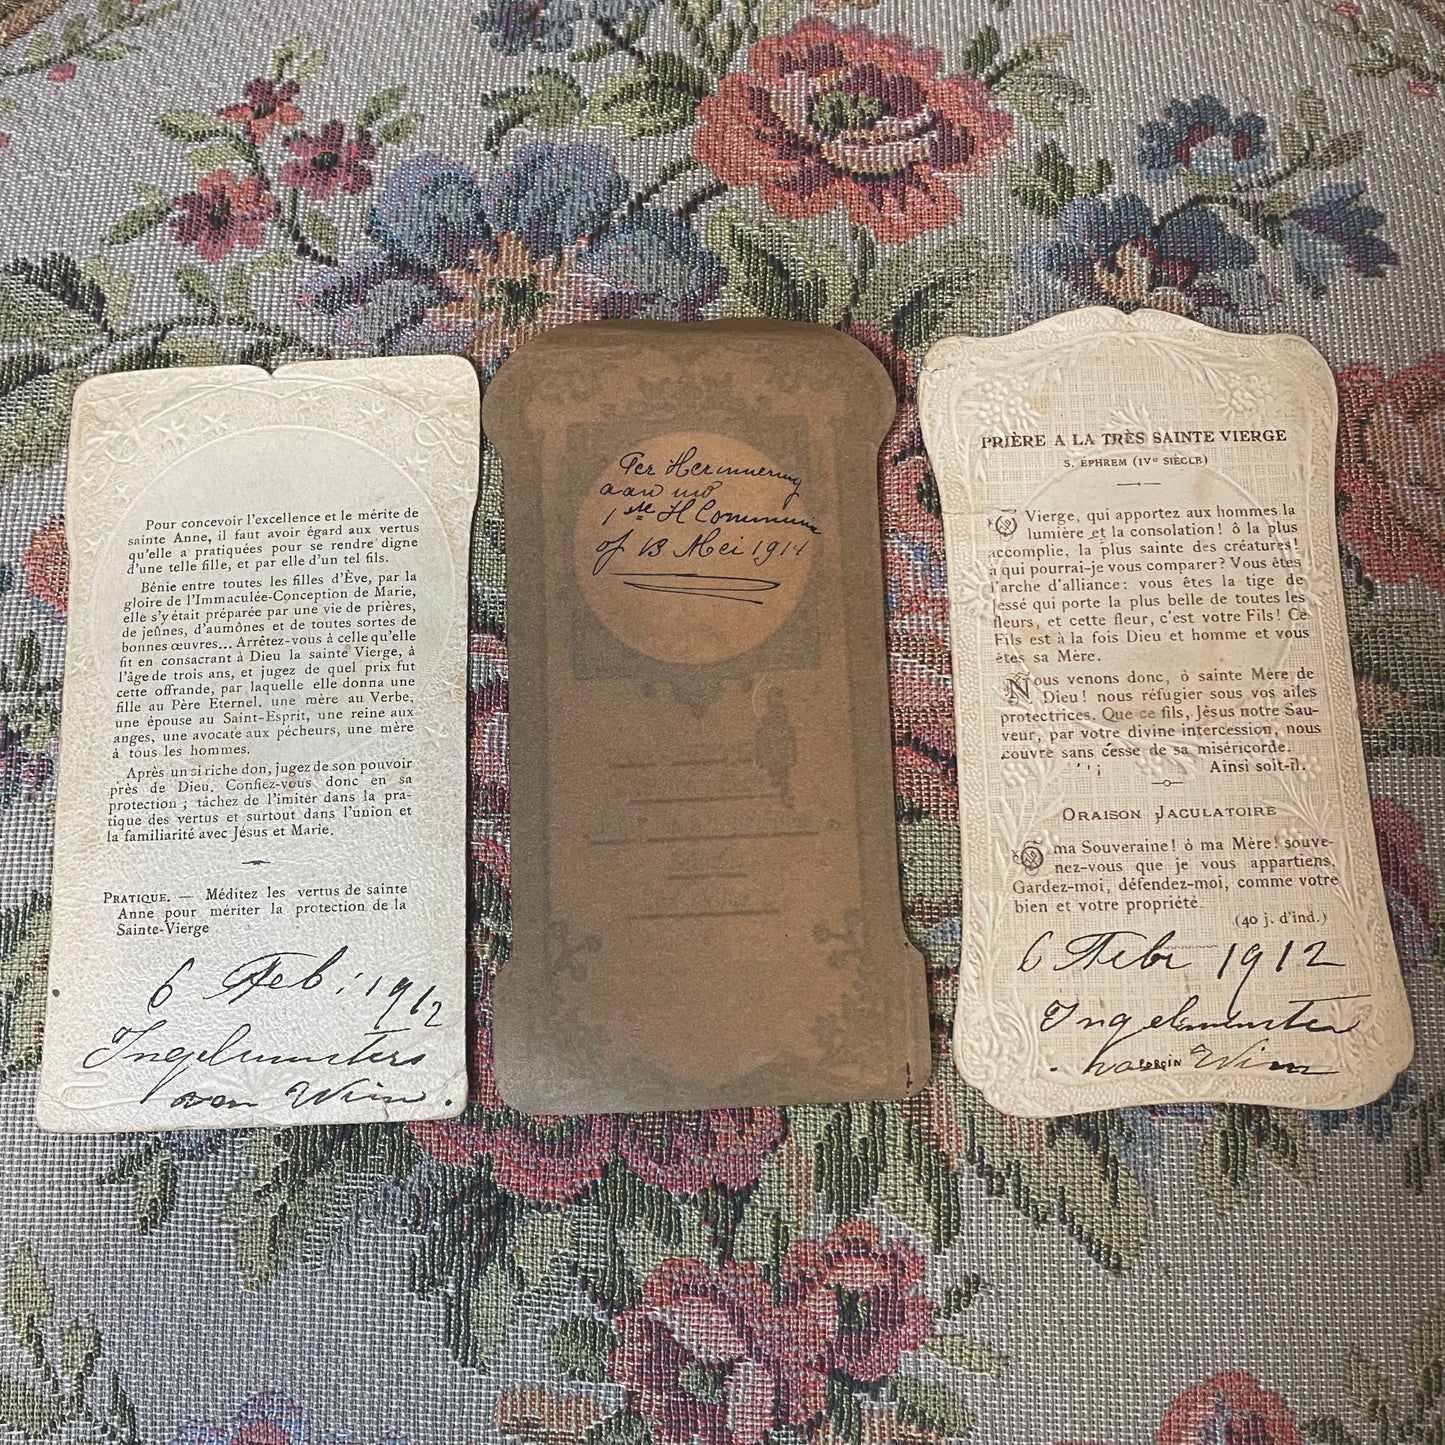 Pour concevoir l'excellence et le mérite de
sainte Anne, il faut avoir égard aux vertus
qu'elle a pratiquées pour se rendre digne
d'une telle fille, et par elle d'un tel fils.
Bénie entre toutes les filles d'Ève, par la
gloire de l'Immaculée-Conception de Marie,
elle s'y était préparée par une vie de prières,
de jeûnes, d'aumônes et de toutes sortes de
bonnes œuvres... Arrêtez-vous à celle qu'elle
fit en consacrant à Dieu la sainte Vierge, à
l'âge de trois ans, et jugez de quel prix fut
cette offrande, par laquelle elle donna une
fille au Père Eternel, une mère au Verbe,
une épouse au Saint-Esprit, une reine aux
anges, une avocate aux pécheurs, une mère
à tous les hommes.
Après un si riche don, jugez de son pouvoir
près de Dieu. Confiez-vous donc en sa
protection ; tâchez de l'imiter dans la pra-
tique des vertus et surtout dans l'union et
la familiarité avec Jésus et Marie.
PRATIQUE. — Méditez les vertus de sainte
Anne pour mériter la protection de la
Sainte-Vierge
6 Feb: 1912
Ingelmunsters
van Wim.
Ter Herinnering
aan mo
1ste H Communie
of 13 Mei 1911
PRIÈRE A LA TRÈS SAINTE VIERGE
S. EPHREM (IVe SIÈCLE)
O Vierge, qui apportez aux hommes la
lumière et la consolation! ô la plus
accomplie, la plus sainte des créatures!
à qui pourrai-je vous comparer? Vous êtes
l'arche d'alliance: vous êtes la tige de
Jessé qui porte la plus belle de toutes les
fleurs, et cette fleur, c'est votre Fils! Ce
Fils est à la fois Dieu et homme et vous
êtes sa Mère.
Nous venons donc, ô sainte Mère de
Dieu! nous réfugier sous vos ailes
protectrices. Que ce fils, Jésus notre Sau-
veur, par votre divine intercession, nous
couvre sans cesse de sa miséricorde.
Ainsi soit-il.
ORAISON JACULATOIRE
O ma Souveraine! ô ma Mère! souve-
nez-vous que je vous appartiens.
Gardez-moi, défendez-moi, comme votre
bien et votre propriété.
(40 j. d'ind.)
6 Febr 1912
Ingelmunster
van Wim